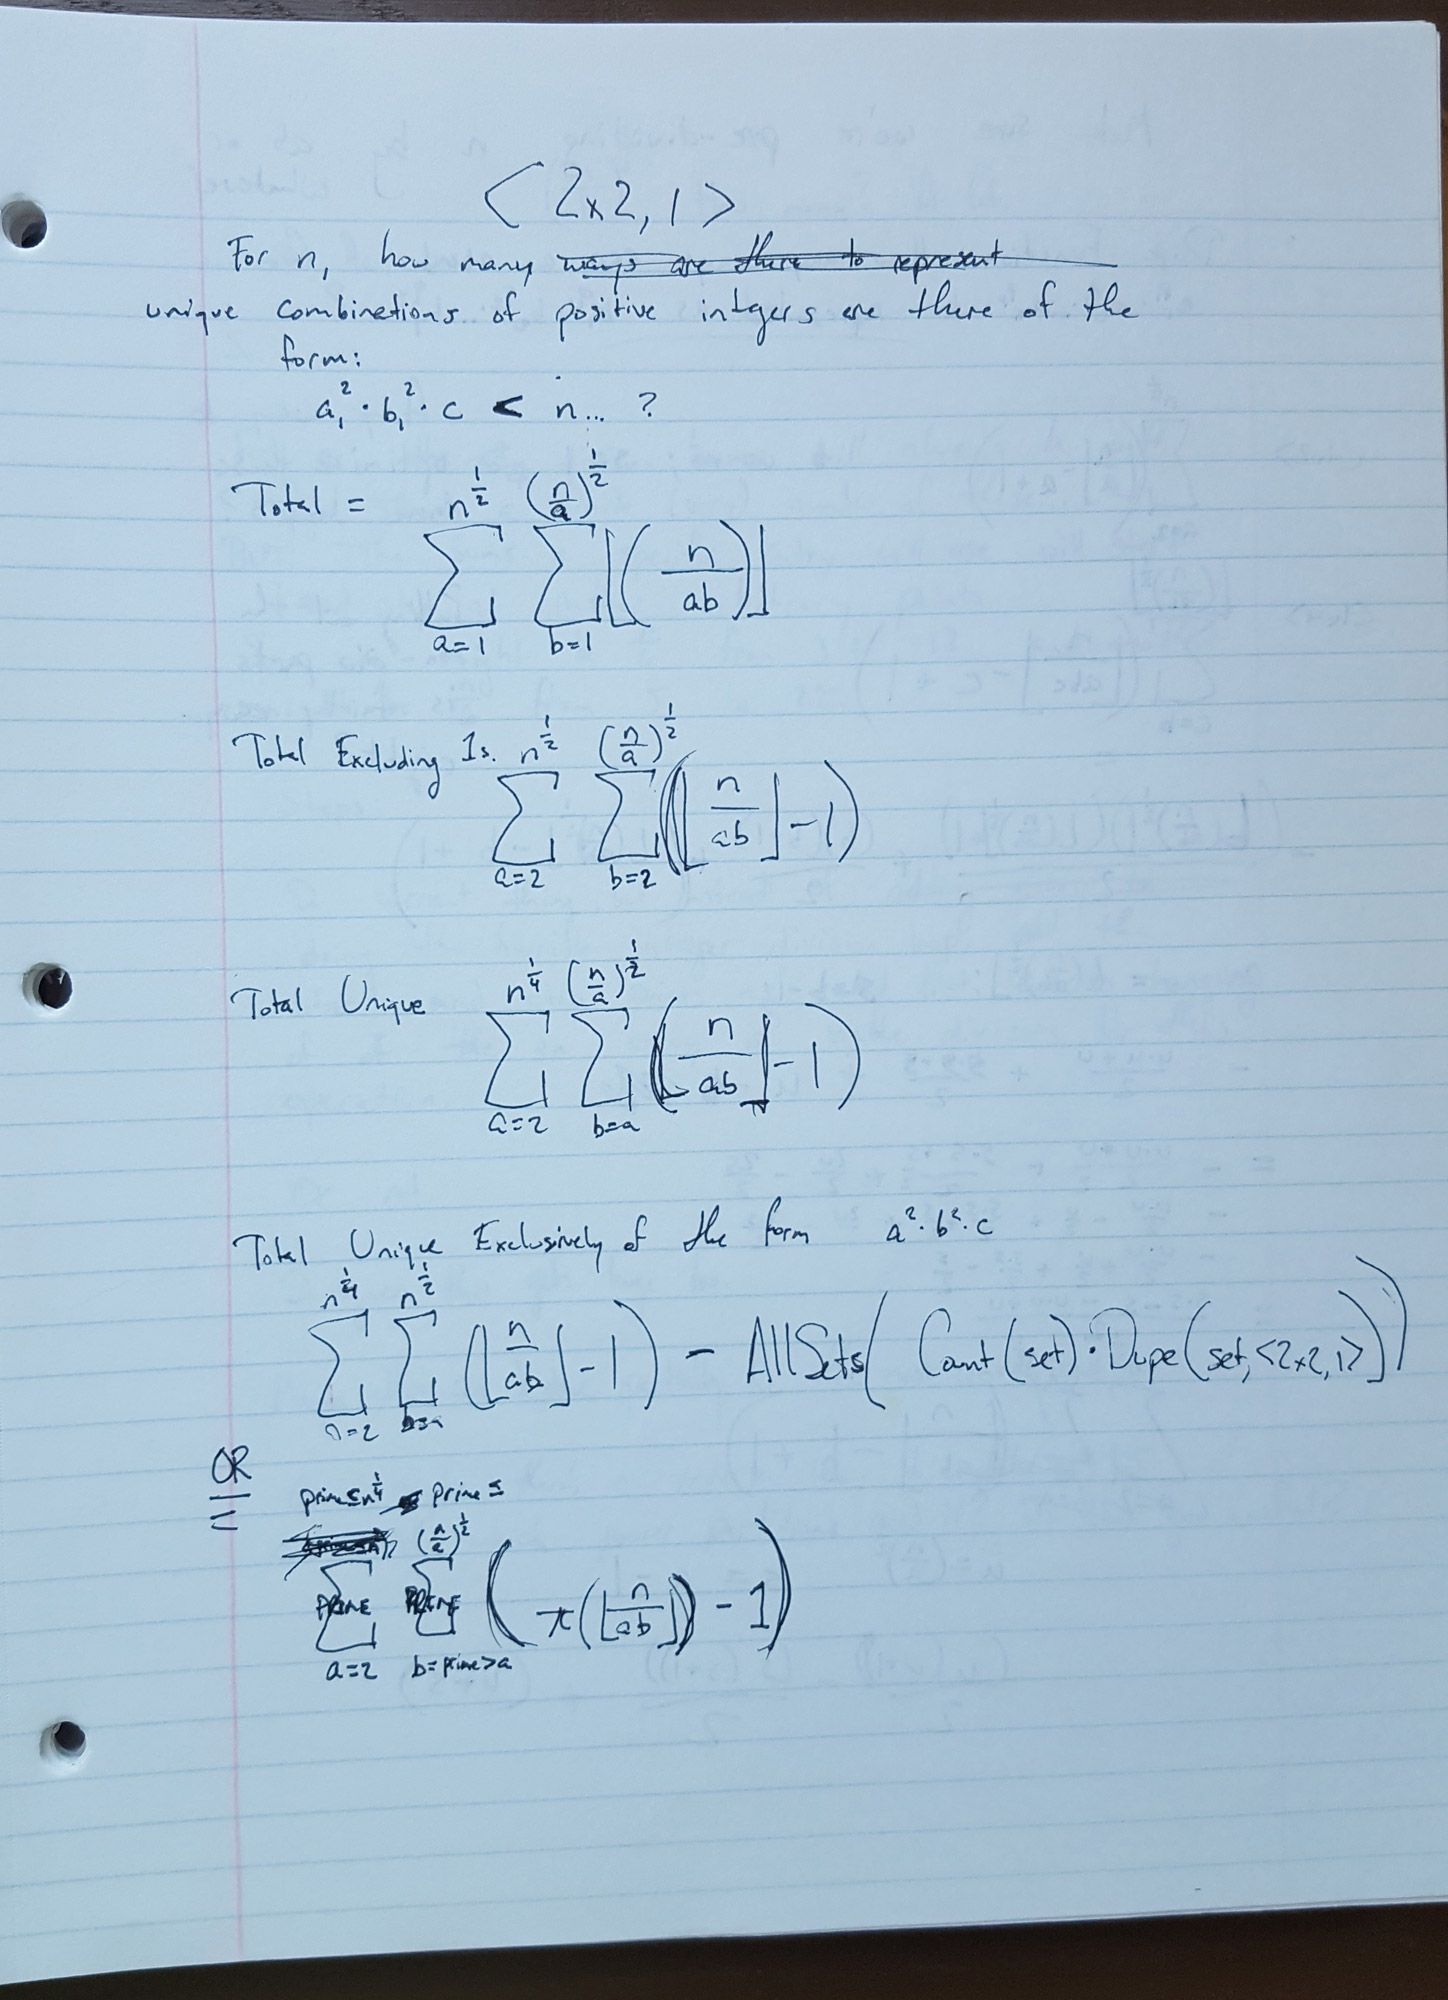 <2x2, 1>
For n, how many ways are there to represent
unique combinations of positive integers are there of the
form:
a₁² · b₁² · c < n... ?
Total =
n^(1/2) (n/a)^(1/2)
∑ ∑ ⌊(n/ab)⌋
a=1 b=1
Total Excluding 1s.
n^(1/2) (n/a)^(1/2)
∑ ∑ (⌊n/ab⌋ - 1)
a=2 b=2
Total Unique
n^(1/4) (n/a)^(1/2)
∑ ∑ (⌊n/ab⌋ - 1)
a=2 b=a
Total Unique Exclusively of the form a² · b² · c
n^(1/4) n^(1/2)
∑ ∑ (⌊n/ab⌋ - 1) - AllSets(Count(set) · Dupe(set, <2x2, 1>))
a=2 b=a
OR
=
prime ≤ n^(1/4) prime ≤
(n/a)^(1/2)
∑ PRIME ∑ PRIME (π(⌊n/ab⌋) - 1)
a=2 b=prime>a